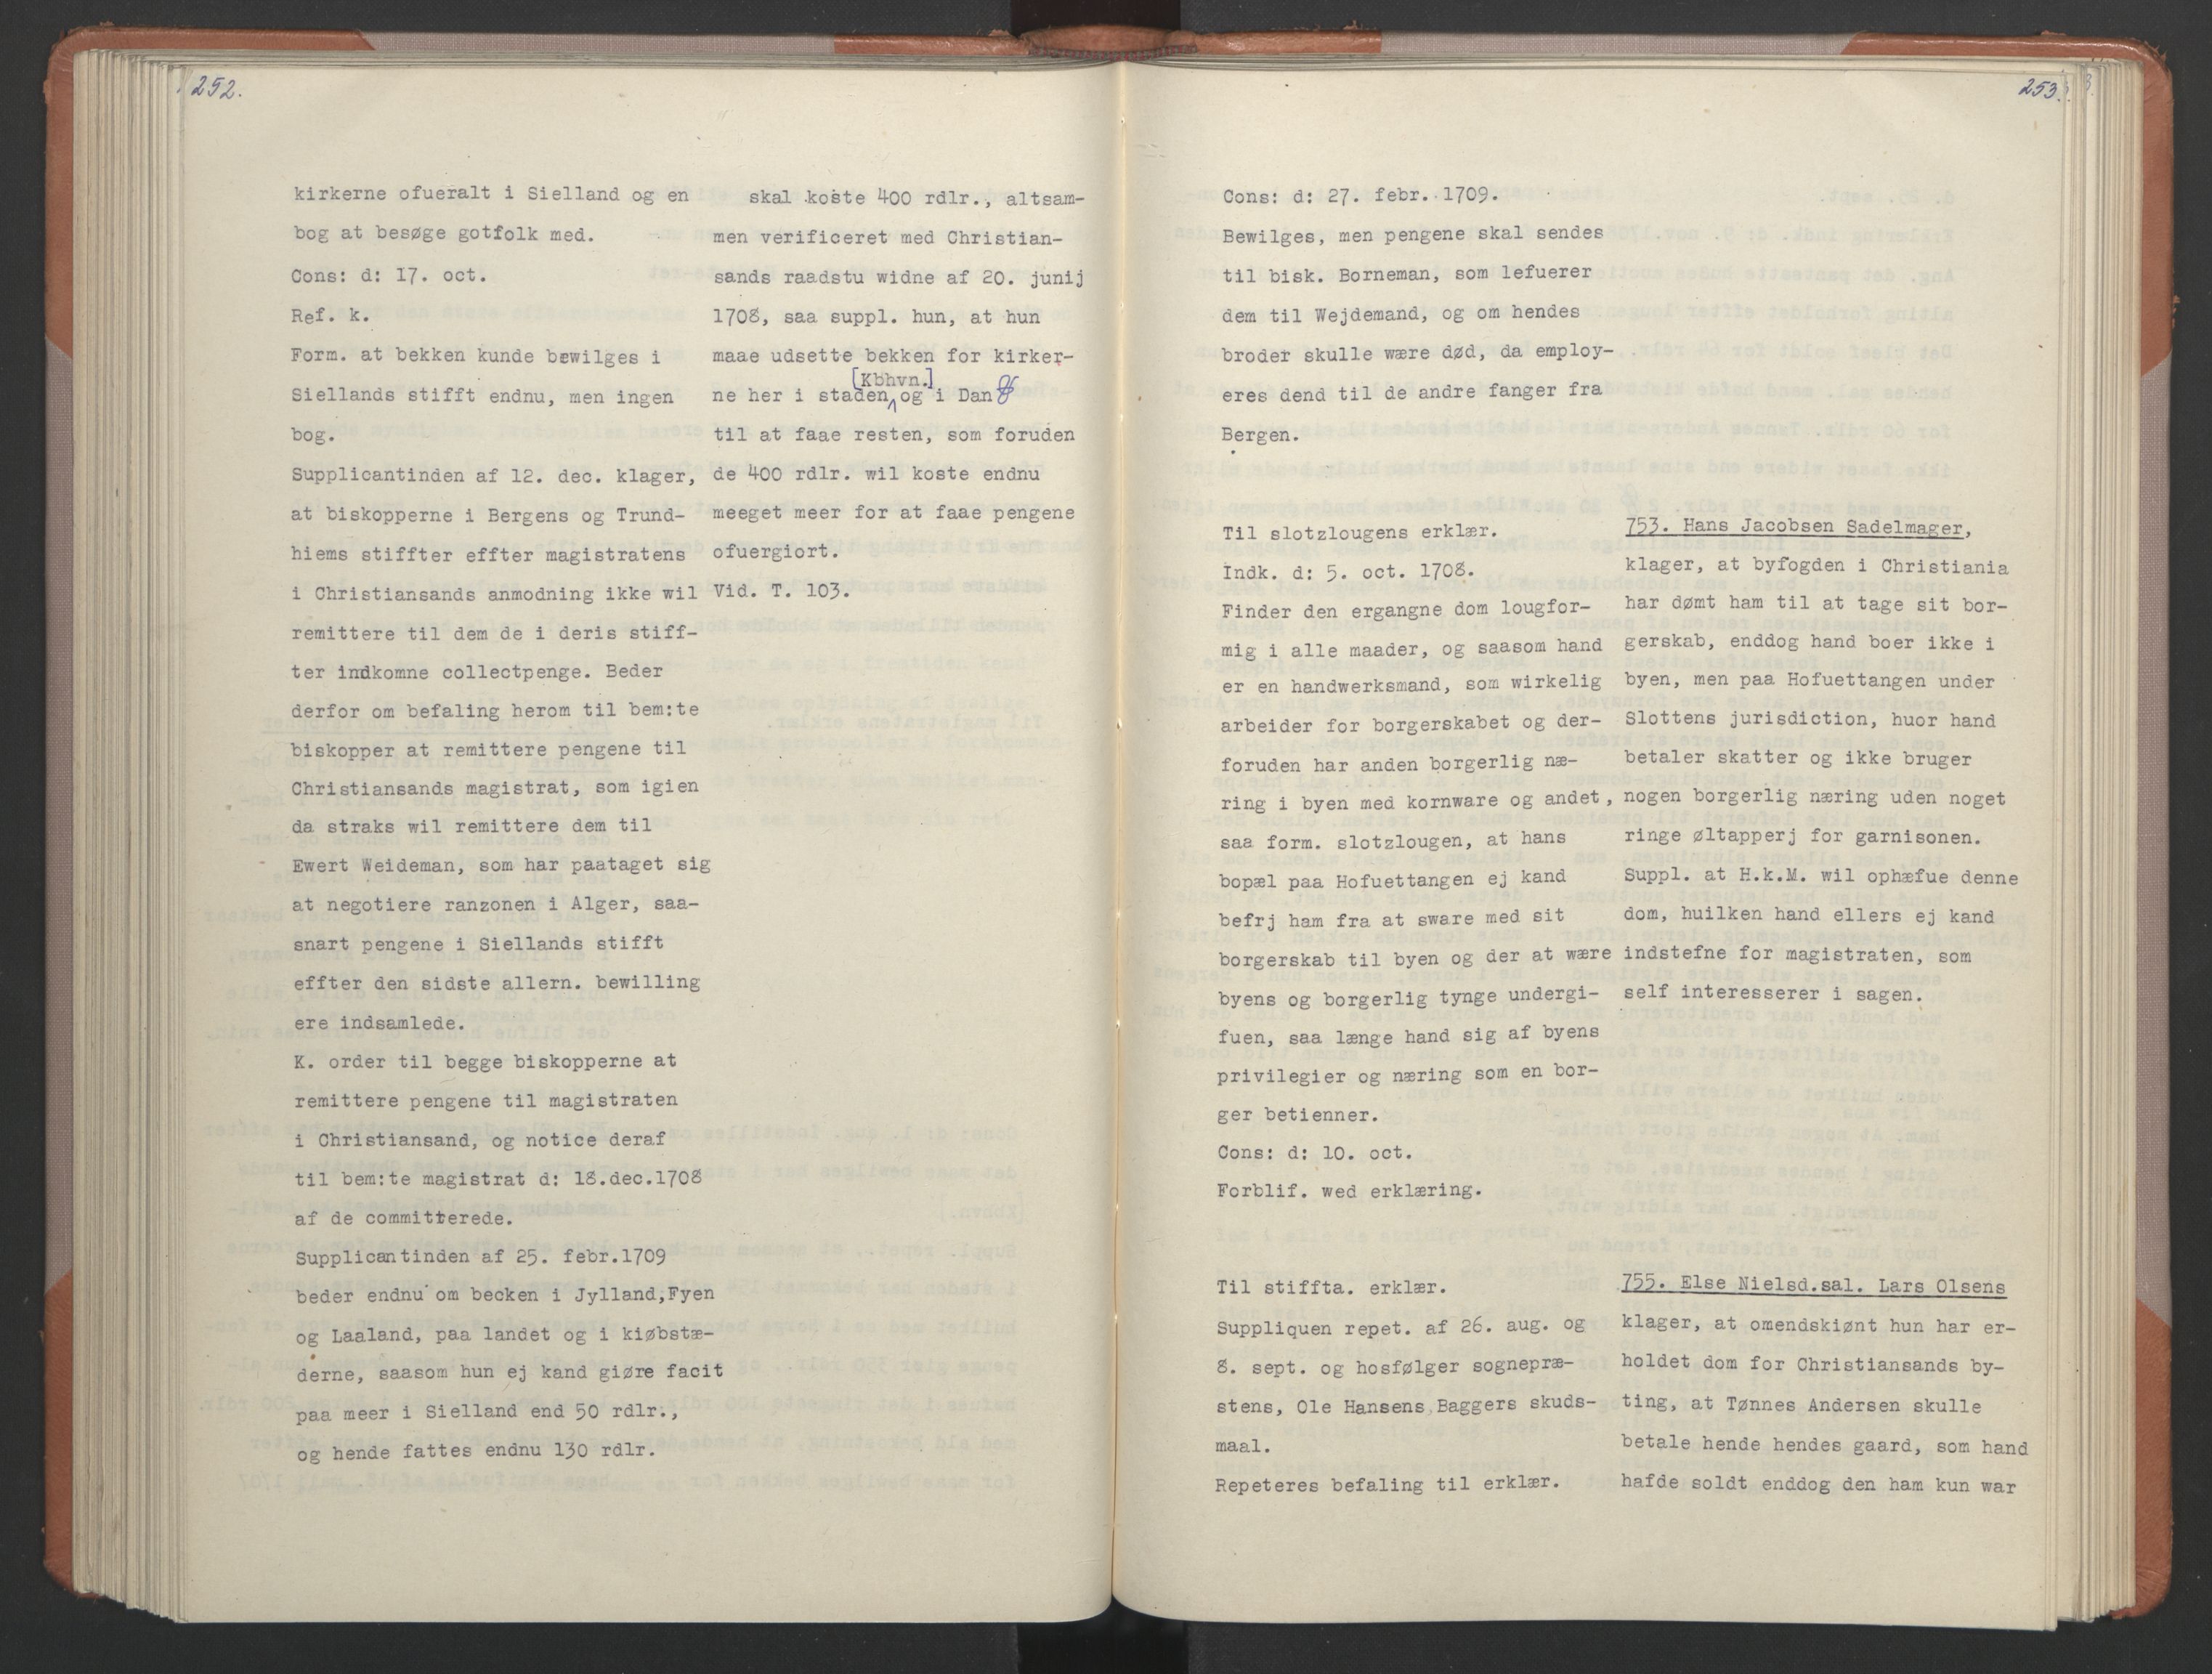 252.
kirkerne ofueralt i Sielland og en
bog at besøge gotfolk med.
Cons: d: 17. oct.
Ref. k.
Form. at bekken kunde bewilges i
Siellands stifft endnu, men ingen
bog.
Supplicantinden af 12. dec. klager,
at biskopperne i Bergens og Trund-
hiems stiffter effter magistratens
i Christiansands anmodning ikke wil
remittere til dem de i deris stiff-
ter indkomne collectpenge. Beder
derfor om befaling herom til bem:te
biskopper at remittere pengene til
Christiansands magistrat, som igien
da straks wil remittere dem til
Ewert Weideman, som har paataget sig
at negotiere ranzonen i Alger, saa-
snart pengene i Siellands stifft
effter den sidste allern. bewilling
ere indsamlede.
K. order til begge biskopperne at
remittere pengene til magistraten
i Christiansand, og notice deraf
til bem:te magistrat d: 18.dec.1708
af de committerede.
Supplicantinden af 25. febr.1709
beder endnu om becken i Jylland,Fyen
og Laaland, paa landet og i kiøbstæ-
derne, saasom hun ej kand giøre facit
paa meer i Sielland end 50 rdlr.,
og hende fattes endnu 130 rdlr.
skal koste 400 rdlr., altsam-
men verificeret med Christian-
sands raadstu widne af 20. junij
1708, saa suppl. hun, at hun
maae udsette bekken for kirker-
[Kbhvn.]
ne her i staden og i Dan
til at faae resten, som foruden
de 400 rdlr. wil koste endnu
meeget meer for at faae pengene
ofuergiort.
Vid. T. 103.
253.
Cons: d: 27. febr. 1709.
Bewilges, men pengene skal sendes
til bisk. Borneman, som lefuerer
dem til Wejdemand, og om hendes
broder skulle wære død, da employ-
eres dend til de andre fanger fra
Bergen.
Til slotzlougens erklær.
Indk. d: 5. oct. 1708.
Finder den ergangne dom lougfor-
mig i alle maader, og saasom hand
er en handwerksmand, som wirkelig
arbeider for borgerskabet og der-
foruden har anden borgerlig næ-
ring i byen med kornware og andet,
saa form. slotzlougen, at hans
bopæl paa Hofuettangen ej kand
befrj ham fra at sware med sit
borgerskab til byen og der at wære
byens og borgerlig tynge undergi-
fuen, saa længe hand sig af byens
privilegier og næring som en bor-
ger betienner.
Cons: d: 10. oct.
Forblif. wed erklæring.
753. Hans Jacobsen Sadelmager,
klager, at byfogden i Christiania
har dømt ham til at tage sit bor-
gerskab, enddog hand boer ikke i
byen, men paa Hofuettangen under
Slottens jurisdiction, huor hand
betaler skatter og ikke bruger
nogen borgerlig næring uden noget
ringe øltapperj for garnisonen.
Suppl. at H.k.M. wil ophæfue denne
dom, huilken hand ellers ej kand
indstefne for magistraten, som
self interesserer i sagen.
Til stiffta. erklær.
Suppliquen repet. af 26. aug. og
8. sept. og hosfølger sognepræ-
stens, Ole Hansens Baggers skuds-
maal.
Repeteres befaling til erklær.
755. Else Nielsd.sal. Lars Olsens
klager, at omendskiønt hun har er-
holdet dom for Christiansands by-
ting, at Tønnes Andersen skulle
betale hende hendes gaard, som hand
hafde soldt enddog den ham kun war